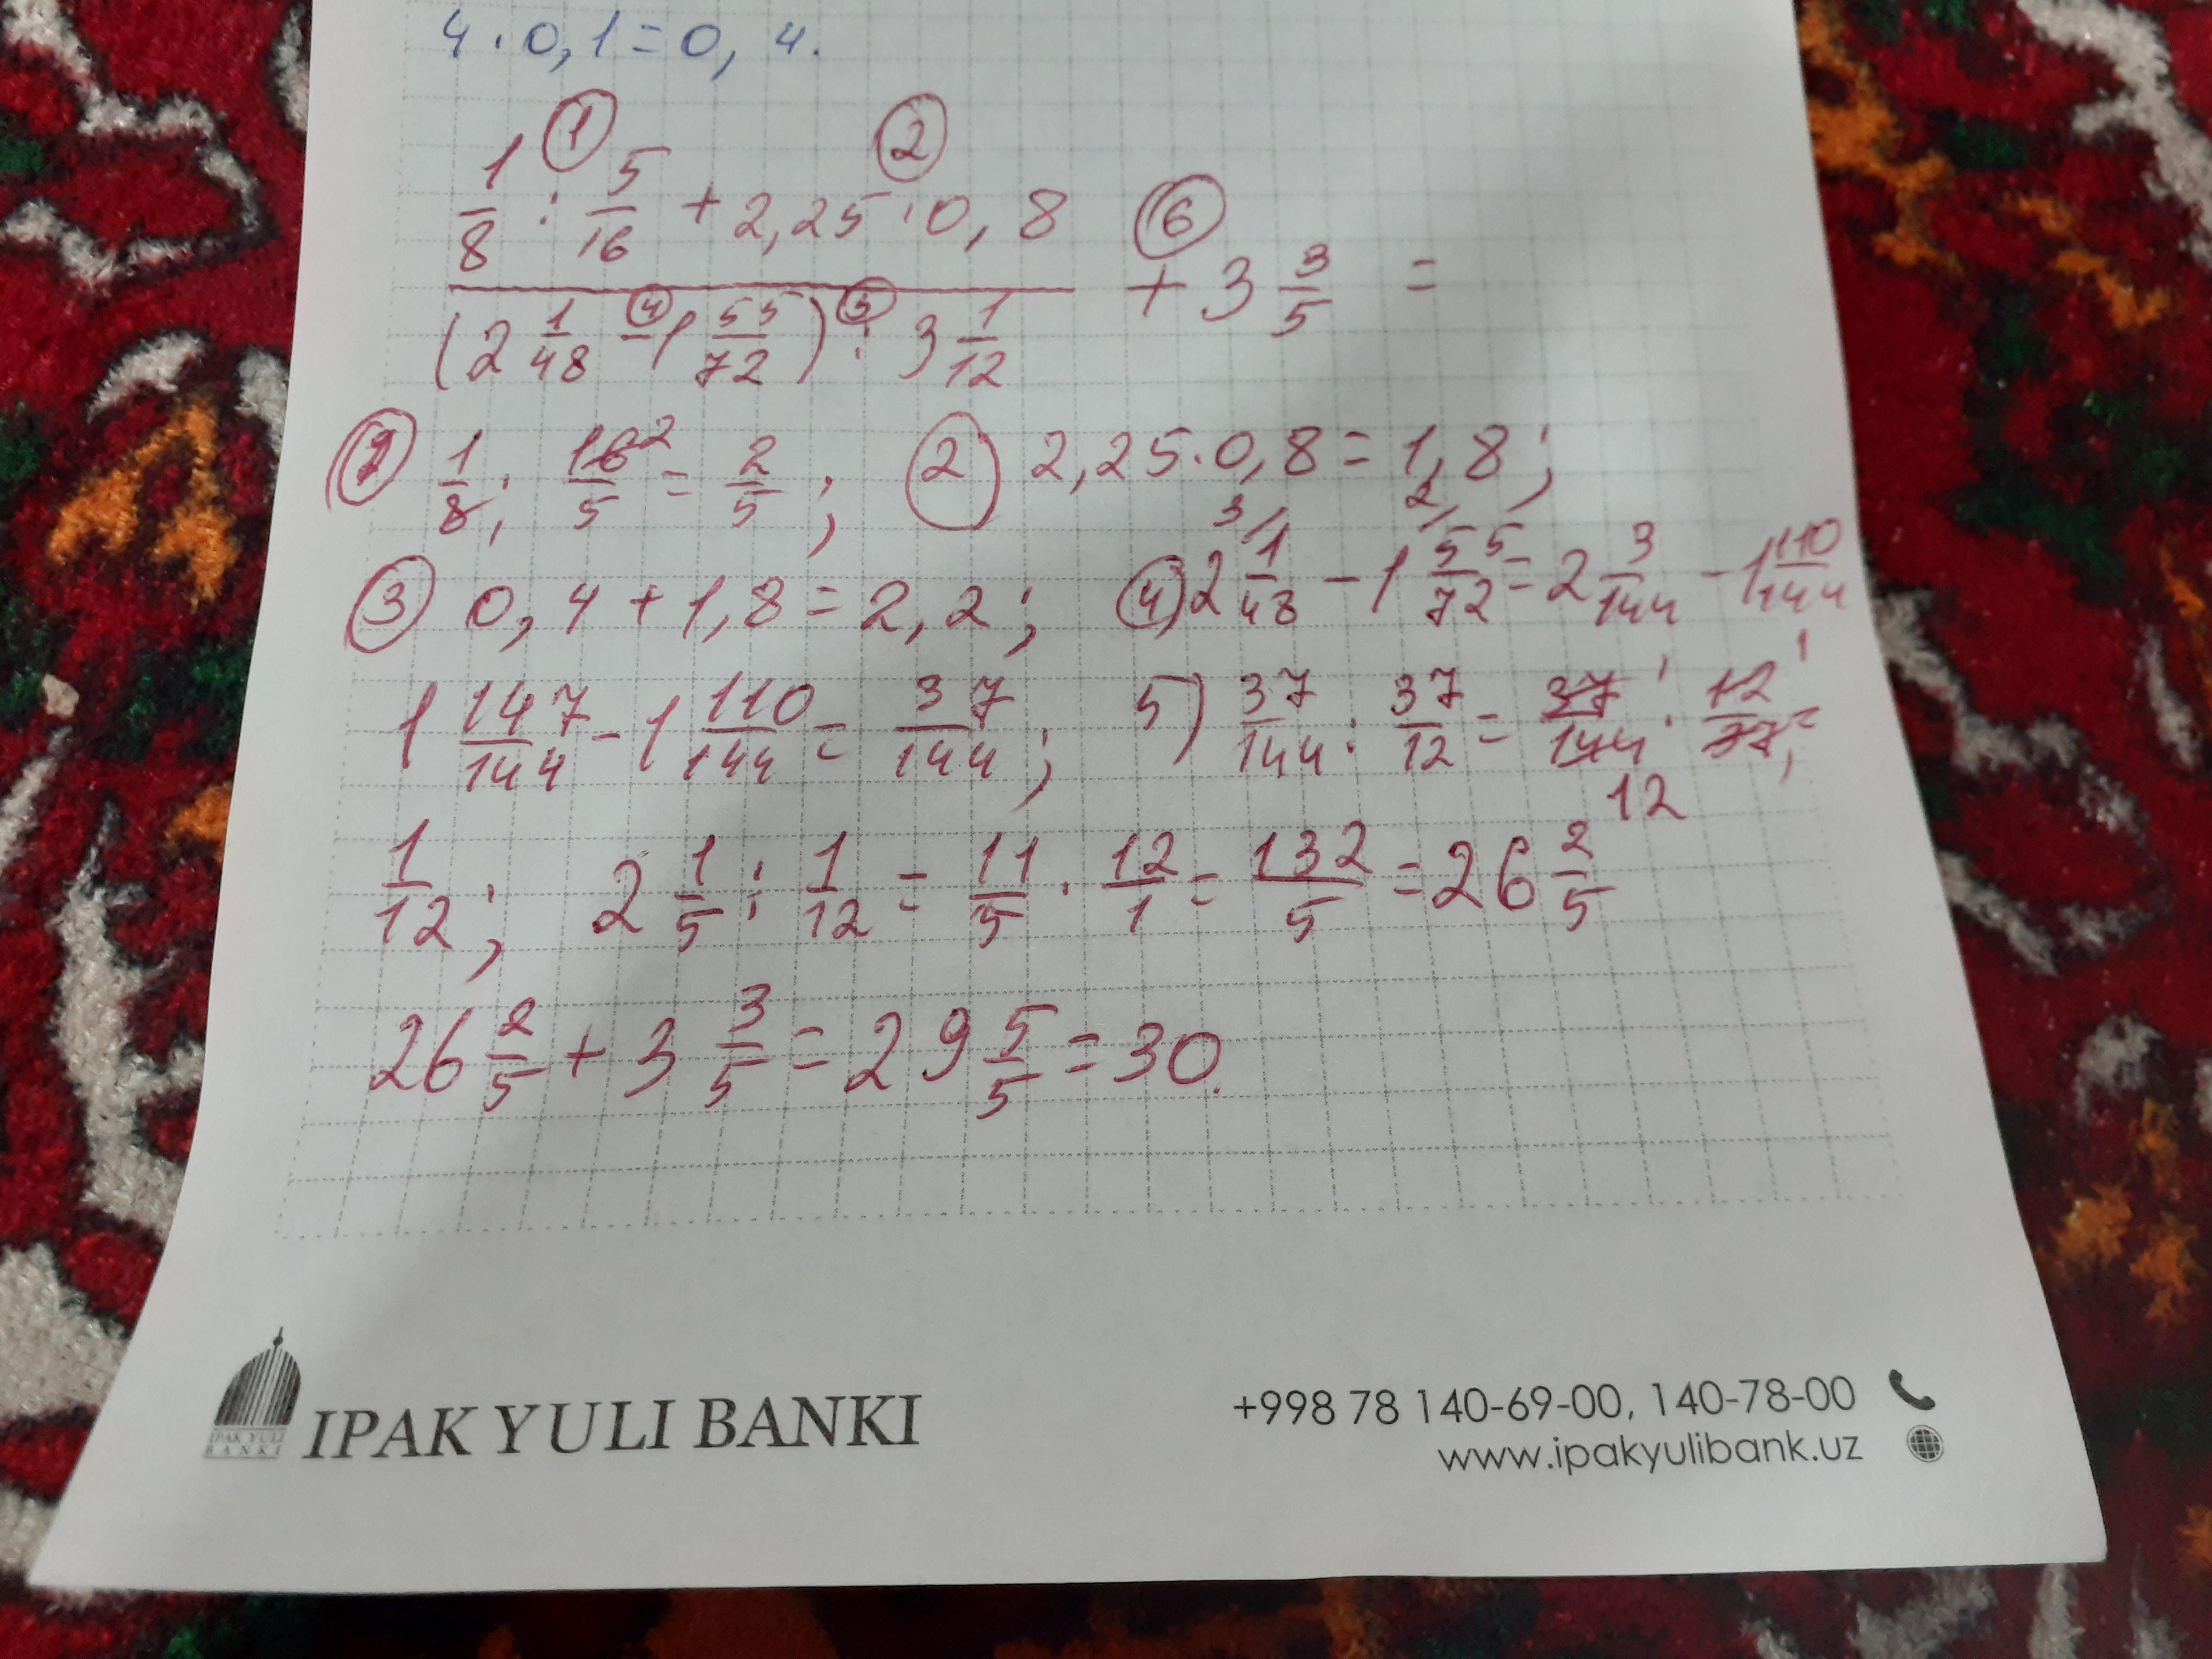 4 · 0,1 = 0,4.
① ②
1/8 : 5/16 + 2,25 · 0,8 ⑥
(2 1/48 ④ - 1 55/72) ⑤ : 3 1/12 + 3 3/5 =
① 1/8 ; 16/5 2 = 2/5 ; ② 2,25 · 0,8 = 1,8 ;
③ 0,4 + 1,8 = 2,2 ; ④ 2 1/48 3/ - 1 55/72 2/ = 2 3/144 - 1 110/144
1 147/144 - 1 110/144 = 37/144 ; 5) 37/144 : 37/12 = 37/144 1 12 · 12/37 1 =
1/12 ; 2 1/5 : 1/12 = 11/5 · 12/1 = 132/5 = 26 2/5
26 2/5 + 3 3/5 = 29 5/5 = 30.
IPAK YULI BANKI
IPAK YULI BANKI
+998 78 140-69-00, 140-78-00
www.ipakyulibank.uz